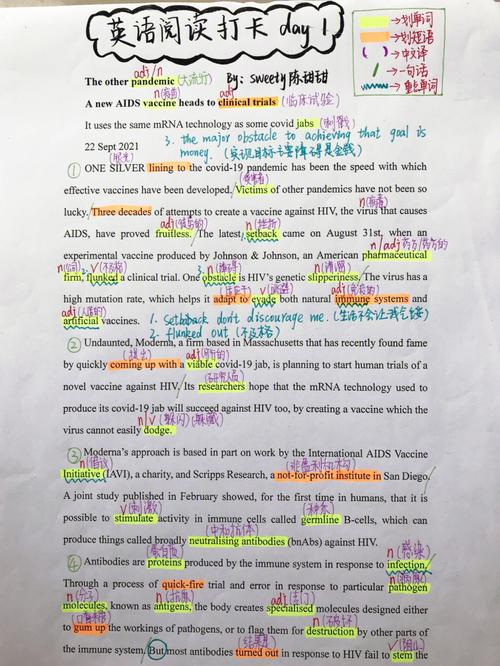 英语阅读打卡 day 1
→划单词
→划短语
( )→中文译
/→一句话
→重点单词
By: sweety陈甜甜
adj/n
The other pandemic (大流行)
n(疫苗) adj
A new AIDS vaccine heads to clinical trials (临床试验)
It uses the same mRNA technology as some covid jabs (刺戳)
3. the major obstacle to achieving that goal is
22 Sept 2021
money. (实现目标主要障碍是金钱)
① ONE SILVER lining to the covid-19 pandemic has been the speed with which
effective vaccines have been developed. Victims of other pandemics have not been so
lucky. Three decades of attempts to create a vaccine against HIV, the virus that causes
AIDS, have proved fruitless. The latest setback came on August 31st, when an
n/adj
experimental vaccine produced by Johnson & Johnson, an American pharmaceutical
n(公司) v(不及格)
firm, flunked a clinical trial. One obstacle is HIV's genetic slipperiness. The virus has a
high mutation rate, which helps it adapt to evade both natural immune systems and
artificial vaccines.
1. setback don't discourage me.
2. flunked out (不及格)
② Undaunted, Moderna, a firm based in Massachusetts that has recently found fame
(提出) adj(可行的)
by quickly coming up with a viable covid-19 jab, is planning to start human trials of a
(研究人员)
novel vaccine against HIV. Its researchers hope that the mRNA technology used to
produce its covid-19 jab will succeed against HIV too, by creating a vaccine which the
n/v (躲闪)
virus cannot easily dodge.
③ Moderna's approach is based in part on work by the International AIDS Vaccine
n(倡议) (非营利机构)
Initiative (IAVI), a charity, and Scripps Research, a not-for-profit institute in San Diego.
A joint study published in February showed, for the first time in humans, that it is
v(刺激)
possible to stimulate activity in immune cells called germline B-cells, which can
(中和抗体)
produce things called broadly neutralising antibodies (bnAbs) against HIV.
(蛋白质) n(感染)
④ Antibodies are proteins produced by the immune system in response to infection.
Through a process of quick-fire trial and error in response to particular pathogen
n(分子) n(抗原) adj
molecules, known as antigens, the body creates specialised molecules designed either
to gum up the workings of pathogens, or to flag them for destruction by other parts of
(结果是)
the immune system. But most antibodies turned out in response to HIV fail to stem the